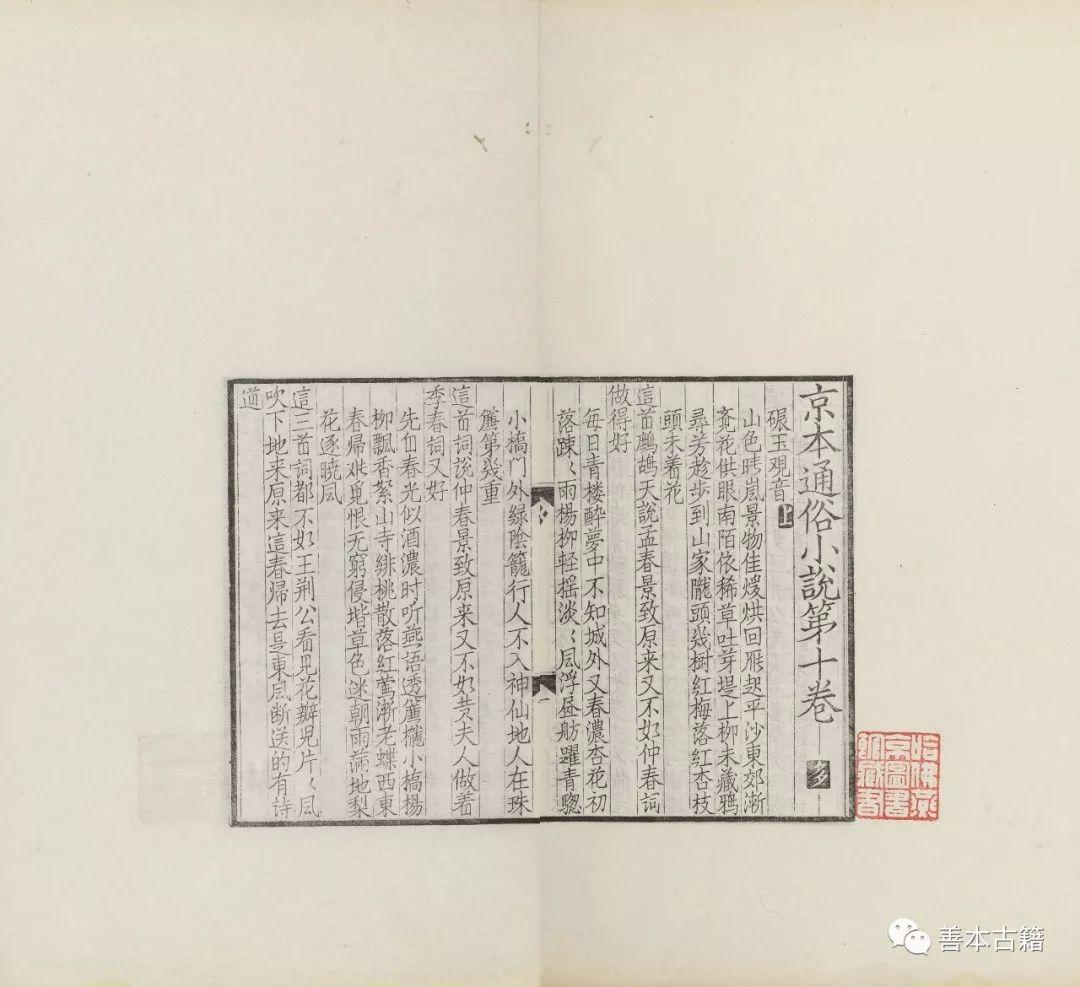 京本通俗小說第十卷
碾玉观音 上
山色晴嵐景物佳煖烘回雁起平沙東郊渐
覓花供眼南陌依稀草吐芽堤上柳未藏鴉
尋芳趁步到山家隴頭幾树红梅落红杏枝
頭未着花
這首鷓鴣天說孟春景致原来又不如仲春詞
做得好
每日青楼醉夢中不知城外又春濃杏花初
落踈〻雨楊柳轻摇淡〻風浮昼舫躍青驄
小橋門外绿陰籠行人不入神仙地人在珠
簾第幾重
這首词說仲春景致原来又不如黄夫人做着
季春词又好
先自春光似酒濃时听燕语透簾櫳小橋楊
柳飄香絮山寺緋桃散落红莺渐老蝶西東
春帰难覓恨无窮侵堦草色迷朝雨满地梨
花逐曉風
這三首词都不如王荆公看見花瓣児片〻風
吹下地来原来這春帰去是東風断送的有诗
道
一
哈佛燕
京圖書
館藏書
善本古籍